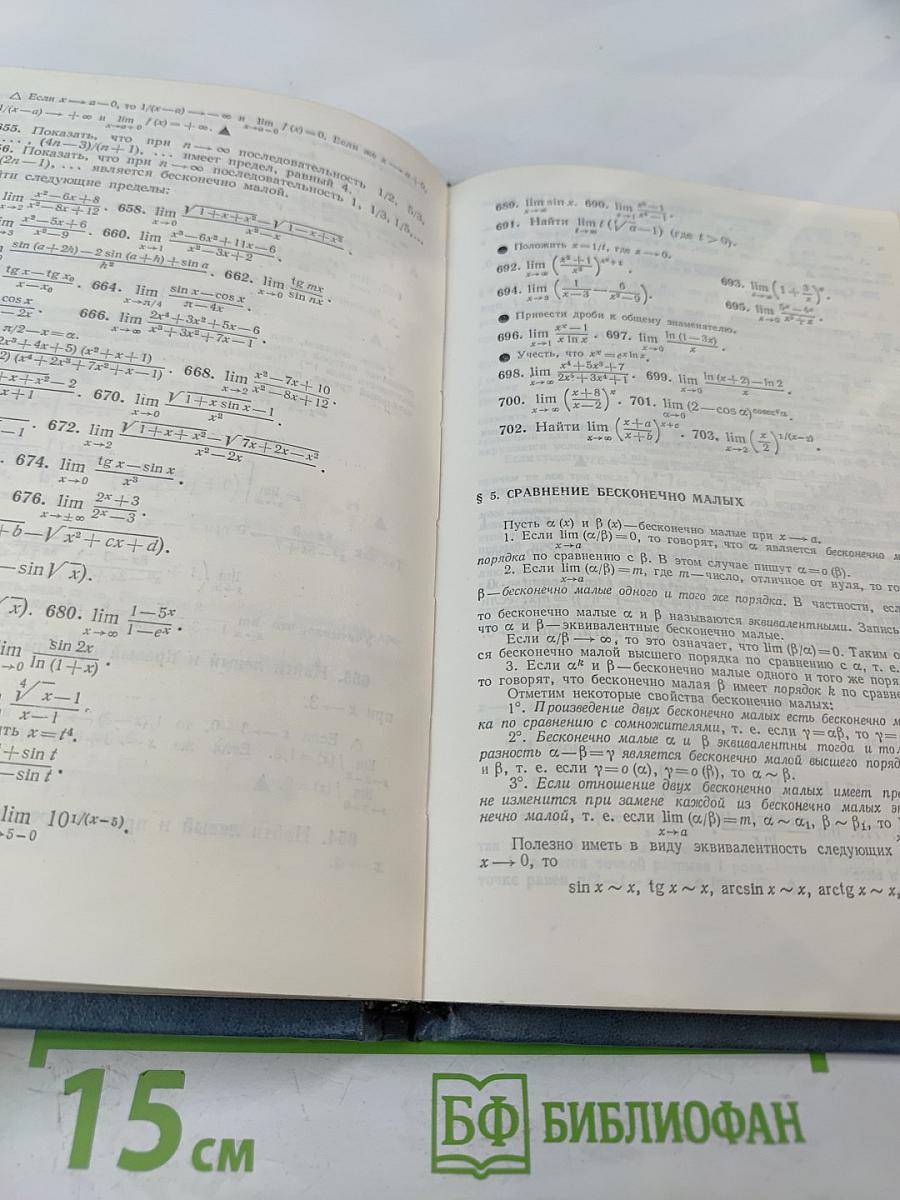 △ Если x → a−0, то 1/(x−a) → −∞ и lim f(x)=0. Если же x → a+0,
1/(x−a) → +∞ и lim f(x)=+∞. ▲
655. Показать, что при n → ∞ последовательность 1/2, 5/3,
..., (4n−3)/(n+1), ... имеет предел, равный 4.
56. Показать, что при n → ∞ последовательность 1, 1/3, 1/5, ...,
(2n−1), ... является бесконечно малой.
ти следующие пределы:
lim (x²−6x+8)/(x²−8x+12). 658. lim x→0 (√(1+x+x²)−√(1−x+x²))/(x²−x).
(x²−5x+6)/(x²−9). 660. lim x→1 (x³−6x²+11x−6)/(x²−3x+2).
(sin(a+2h)−2sin(a+h)+sin a)/h². 662. lim x→0 tg mx/sin nx.
(tg x−tg x₀)/(x−x₀). 664. lim x→π/4 (sin x−cos x)/(π−4x).
cos x/−2x. 666. lim x→∞ (2x⁴+3x²+5x−6)/(x³+3x²+7x−1).
π/2−x=α.
2x³+4x+5)(x²+x+1)
2)(x⁴+2x³+7x²+x−1). 668. lim x→2 (x²−7x+10)/(x²−8x+12).
+x+x²−2/x+1. 670. lim x→0 (√(1+x sin x)−1)/x².
−1. 672. lim x→2 (√(1+x+x²)−√(7x+2x−x²))/(x²−2x).
674. lim x→0 (tg x−sin x)/x³.
676. lim x→±∞ (2ˣ+3)/(2ˣ−3).
+b−√(x²+cx+d)).
−sin√x).
√x). 680. lim x→∞ (1−5ˣ)/(1−eˣ).
im →0 sin 2x/ln(1+x).
(⁴√x−1)/(x−1).
ть x=t⁴.
+sin t/−sin t.
lim →5−0 10^(1/(x−5)).
689. lim x→∞ sin x. 690. lim x→1
691. Найти lim t→∞ t(ᵗ√a−1) (где t>0).
● Положить x=1/t, где x → 0.
692. lim x→∞ ((x²+1)/x²)
693. lim x→∞ (1+3/x)ˣ.
694. lim x→3 (1/(x−3)−6/(x²−9)).
695. lim x→0
● Привести дроби к общему знаменателю.
696. lim x→1 (xˣ−1)/(x ln x). 697. lim x→0 ln(1−3x)/x.
● Учесть, что xˣ=e^(x ln x).
698. lim x→∞ (x⁴+5x³+7)/(2x⁵+3x⁴+1). 699. lim x→0 (ln(x+2)−ln 2)/x.
700. lim x→∞ ((x+8)/(x−2))ˣ. 701. lim α→0 (2−cos α)^(cosec²α).
702. Найти lim x→∞ ((x+a)/(x+b))^(x+c). 703. lim x→2 (x/2)^(1/(x−2)).
§ 5. СРАВНЕНИЕ БЕСКОНЕЧНО МАЛЫХ
Пусть α(x) и β(x)—бесконечно малые при x → a.
1. Если lim x→a (α/β)=0, то говорят, что α является бесконечно м
порядка по сравнению с β. В этом случае пишут α=o(β).
2. Если lim x→a (α/β)=m, где m—число, отличное от нуля, то го
β—бесконечно малые одного и того же порядка. В частности, есл
то бесконечно малые α и β называются эквивалентными. Запись
что α и β—эквивалентные бесконечно малые.
Если α/β → ∞, то это означает, что lim (β/α)=0. Таким о
ся бесконечно малой высшего порядка по сравнению с α, т. е.
3. Если αᵏ и β—бесконечно малые одного и того же поря
то говорят, что бесконечно малая β имеет порядок k по сравне
Отметим некоторые свойства бесконечно малых:
1°. Произведение двух бесконечно малых есть бесконечно м
ка по сравнению с сомножителями, т. е. если γ=αβ, то γ=
2°. Бесконечно малые α и β эквивалентны тогда и тол
разность α−β=γ является бесконечно малой высшего поряд
и β, т. е. если γ=o(α), γ=o(β), то α∼β.
3°. Если отношение двух бесконечно малых имеет пре
не изменится при замене каждой из бесконечно малых э
нечно малой, т. е. если lim x→a (α/β)=m, α∼α₁, β∼β₁, то
Полезно иметь в виду эквивалентность следующих
x → 0, то
sin x∼x, tg x∼x, arcsin x∼x, arctg x∼x,
15 см
БФ БИБЛИОФАН